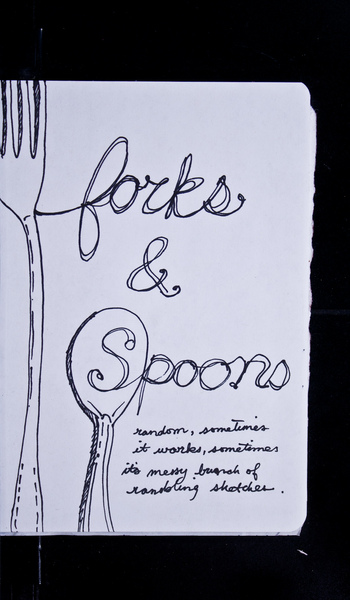 forks
&
Spoons
random, sometimes
it works, sometimes
it's messy bunch of
rambling sketches.